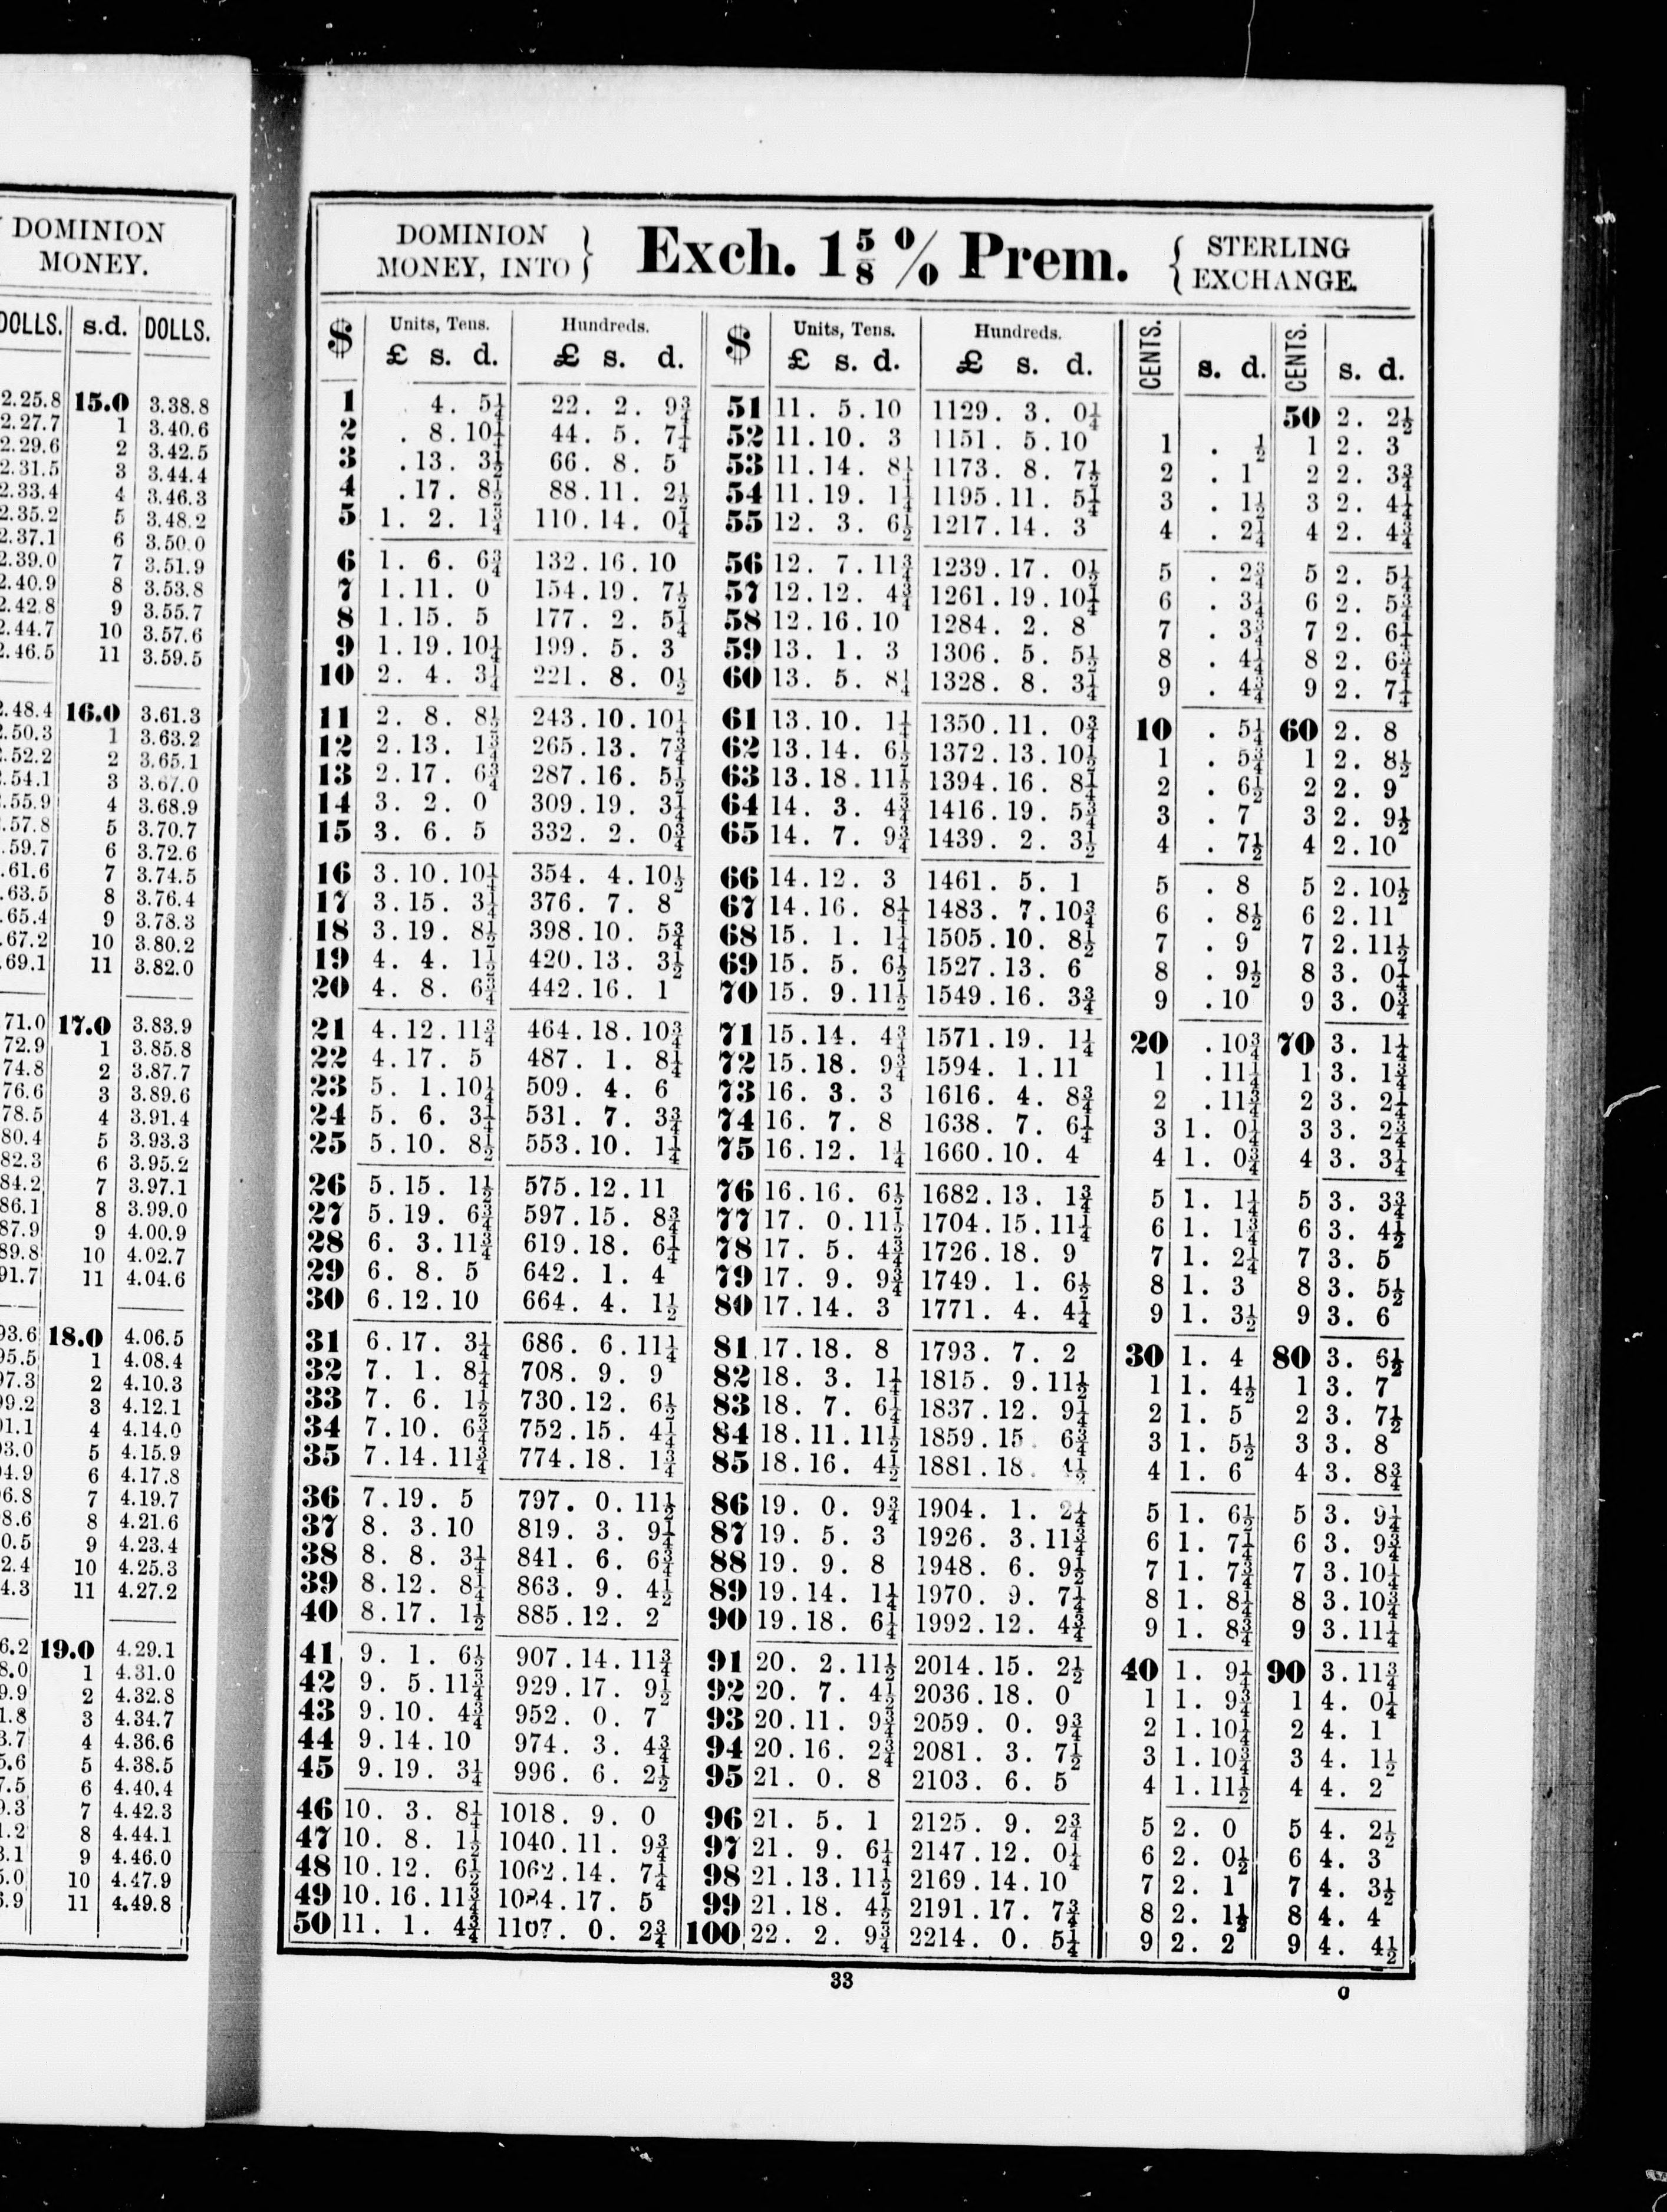 DOMINION
MONEY.
DOLLS. s.d. DOLLS.
2.25.8 15.0 3.38.8
2.27.7 1 3.40.6
2.29.6 2 3.42.5
2.31.5 3 3.44.4
2.33.4 4 3.46.3
2.35.2 5 3.48.2
2.37.1 6 3.50.0
2.39.0 7 3.51.9
2.40.9 8 3.53.8
2.42.8 9 3.55.7
2.44.7 10 3.57.6
2.46.5 11 3.59.5
.48.4 16.0 3.61.3
.50.3 1 3.63.2
.52.2 2 3.65.1
.54.1 3 3.67.0
.55.9 4 3.68.9
.57.8 5 3.70.7
.59.7 6 3.72.6
.61.6 7 3.74.5
.63.5 8 3.76.4
.65.4 9 3.78.3
.67.2 10 3.80.2
.69.1 11 3.82.0
71.0 17.0 3.83.9
72.9 1 3.85.8
74.8 2 3.87.7
76.6 3 3.89.6
78.5 4 3.91.4
80.4 5 3.93.3
82.3 6 3.95.2
84.2 7 3.97.1
86.1 8 3.99.0
87.9 9 4.00.9
89.8 10 4.02.7
91.7 11 4.04.6
93.6 18.0 4.06.5
95.5 1 4.08.4
97.3 2 4.10.3
99.2 3 4.12.1
01.1 4 4.14.0
03.0 5 4.15.9
4.9 6 4.17.8
6.8 7 4.19.7
8.6 8 4.21.6
0.5 9 4.23.4
2.4 10 4.25.3
4.3 11 4.27.2
6.2 19.0 4.29.1
8.0 1 4.31.0
9.9 2 4.32.8
1.8 3 4.34.7
3.7 4 4.36.6
5.6 5 4.38.5
7.5 6 4.40.4
9.3 7 4.42.3
1.2 8 4.44.1
3.1 9 4.46.0
5.0 10 4.47.9
6.9 11 4.49.8
DOMINION MONEY, INTO } Exch. 1 5/8 % Prem. { STERLING EXCHANGE.
$ Units, Tens. Hundreds. $ Units, Tens. Hundreds. CENTS. CENTS.
£ s. d. £ s. d. £ s. d. £ s. d. s. d. s. d.
1 4. 5¼ 22. 2. 9¾ 51 11. 5.10 1129. 3. 0¼ 50 2. 2½
2 . 8.10½ 44. 5. 7¼ 52 11.10. 3 1151. 5.10 1 . ½ 1 2. 3
3 .13. 3½ 66. 8. 5 53 11.14. 8¼ 1173. 8. 7½ 2 . 1 2 2. 3¾
4 .17. 8½ 88.11. 2½ 54 11.19. 1¼ 1195.11. 5¼ 3 . 1½ 3 2. 4¼
5 1. 2. 1¾ 110.14. 0¼ 55 12. 3. 6½ 1217.14. 3 4 . 2¼ 4 2. 4¾
6 1. 6. 6¾ 132.16.10 56 12. 7.11¾ 1239.17. 0½ 5 . 2¾ 5 2. 5¼
7 1.11. 0 154.19. 7½ 57 12.12. 4¾ 1261.19.10¼ 6 . 3¼ 6 2. 5¾
8 1.15. 5 177. 2. 5¼ 58 12.16.10 1284. 2. 8 7 . 3¾ 7 2. 6¼
9 1.19.10¼ 199. 5. 3 59 13. 1. 3 1306. 5. 5½ 8 . 4¼ 8 2. 6¾
10 2. 4. 3¼ 221. 8. 0½ 60 13. 5. 8¼ 1328. 8. 3¼ 9 . 4¾ 9 2. 7¼
11 2. 8. 8½ 243.10.10¼ 61 13.10. 1¼ 1350.11. 0¾ 10 . 5¼ 60 2. 8
12 2.13. 1¾ 265.13. 7¾ 62 13.14. 6½ 1372.13.10½ 1 . 5¾ 1 2. 8½
13 2.17. 6¾ 287.16. 5½ 63 13.18.11½ 1394.16. 8¼ 2 . 6½ 2 2. 9
14 3. 2. 0 309.19. 3¼ 64 14. 3. 4¾ 1416.19. 5¾ 3 . 7 3 2. 9½
15 3. 6. 5 332. 2. 0¾ 65 14. 7. 9¾ 1439. 2. 3½ 4 . 7½ 4 2.10
16 3.10.10¼ 354. 4.10½ 66 14.12. 3 1461. 5. 1 5 . 8 5 2.10½
17 3.15. 3¼ 376. 7. 8 67 14.16. 8¼ 1483. 7.10¾ 6 . 8½ 6 2.11
18 3.19. 8½ 398.10. 5¾ 68 15. 1. 1¼ 1505.10. 8½ 7 . 9 7 2.11½
19 4. 4. 1½ 420.13. 3½ 69 15. 5. 6½ 1527.13. 6 8 . 9½ 8 3. 0¼
20 4. 8. 6¾ 442.16. 1 70 15. 9.11½ 1549.16. 3¾ 9 .10 9 3. 0¾
21 4.12.11¾ 464.18.10¾ 71 15.14. 4¾ 1571.19. 1¼ 20 .10¾ 70 3. 1¼
22 4.17. 5 487. 1. 8¼ 72 15.18. 9¾ 1594. 1.11 1 .11¼ 1 3. 1¾
23 5. 1.10¼ 509. 4. 6 73 16. 3. 3 1616. 4. 8¾ 2 .11¾ 2 3. 2¼
24 5. 6. 3¼ 531. 7. 3¾ 74 16. 7. 8 1638. 7. 6¼ 3 1. 0¼ 3 3. 2¾
25 5.10. 8½ 553.10. 1¼ 75 16.12. 1¼ 1660.10. 4 4 1. 0¾ 4 3. 3¼
26 5.15. 1½ 575.12.11 76 16.16. 6½ 1682.13. 1¾ 5 1. 1¼ 5 3. 3¾
27 5.19. 6¾ 597.15. 8¾ 77 17. 0.11½ 1704.15.11¼ 6 1. 1¾ 6 3. 4½
28 6. 3.11¾ 619.18. 6¼ 78 17. 5. 4¾ 1726.18. 9 7 1. 2¼ 7 3. 5
29 6. 8. 5 642. 1. 4 79 17. 9. 9¾ 1749. 1. 6½ 8 1. 3 8 3. 5½
30 6.12.10 664. 4. 1½ 80 17.14. 3 1771. 4. 4¼ 9 1. 3½ 9 3. 6
31 6.17. 3¼ 686. 6.11¼ 81 17.18. 8 1793. 7. 2 30 1. 4 80 3. 6½
32 7. 1. 8¼ 708. 9. 9 82 18. 3. 1¼ 1815. 9.11½ 1 1. 4½ 1 3. 7
33 7. 6. 1½ 730.12. 6½ 83 18. 7. 6¼ 1837.12. 9¼ 2 1. 5 2 3. 7½
34 7.10. 6¾ 752.15. 4¼ 84 18.11.11½ 1859.15. 6¾ 3 1. 5½ 3 3. 8
35 7.14.11¾ 774.18. 1¾ 85 18.16. 4½ 1881.18. 4½ 4 1. 6 4 3. 8¾
36 7.19. 5 797. 0.11½ 86 19. 0. 9¾ 1904. 1. 2¼ 5 1. 6½ 5 3. 9¼
37 8. 3.10 819. 3. 9¼ 87 19. 5. 3 1926. 3.11¾ 6 1. 7¼ 6 3. 9¾
38 8. 8. 3¼ 841. 6. 6¾ 88 19. 9. 8 1948. 6. 9½ 7 1. 7¾ 7 3.10¼
39 8.12. 8¼ 863. 9. 4½ 89 19.14. 1¼ 1970. 9. 7¼ 8 1. 8¼ 8 3.10¾
40 8.17. 1½ 885.12. 2 90 19.18. 6¼ 1992.12. 4¾ 9 1. 8¾ 9 3.11¼
41 9. 1. 6½ 907.14.11¾ 91 20. 2.11½ 2014.15. 2½ 40 1. 9¼ 90 3.11¾
42 9. 5.11¾ 929.17. 9½ 92 20. 7. 4½ 2036.18. 0 1 1. 9¾ 1 4. 0¼
43 9.10. 4¾ 952. 0. 7 93 20.11. 9¾ 2059. 0. 9¾ 2 1.10¼ 2 4. 1
44 9.14.10 974. 3. 4¾ 94 20.16. 2¾ 2081. 3. 7½ 3 1.10¾ 3 4. 1½
45 9.19. 3¼ 996. 6. 2½ 95 21. 0. 8 2103. 6. 5 4 1.11½ 4 4. 2
46 10. 3. 8¼ 1018. 9. 0 96 21. 5. 1 2125. 9. 2¾ 5 2. 0 5 4. 2½
47 10. 8. 1½ 1040.11. 9¾ 97 21. 9. 6¼ 2147.12. 0¼ 6 2. 0½ 6 4. 3
48 10.12. 6½ 1062.14. 7¼ 98 21.13.11½ 2169.14.10 7 2. 1 7 4. 3½
49 10.16.11¾ 1084.17. 5 99 21.18. 4½ 2191.17. 7¾ 8 2. 1½ 8 4. 4
50 11. 1. 4¾ 1107. 0. 2¾ 100 22. 2. 9¾ 2214. 0. 5¼ 9 2. 2 9 4. 4½
33
C